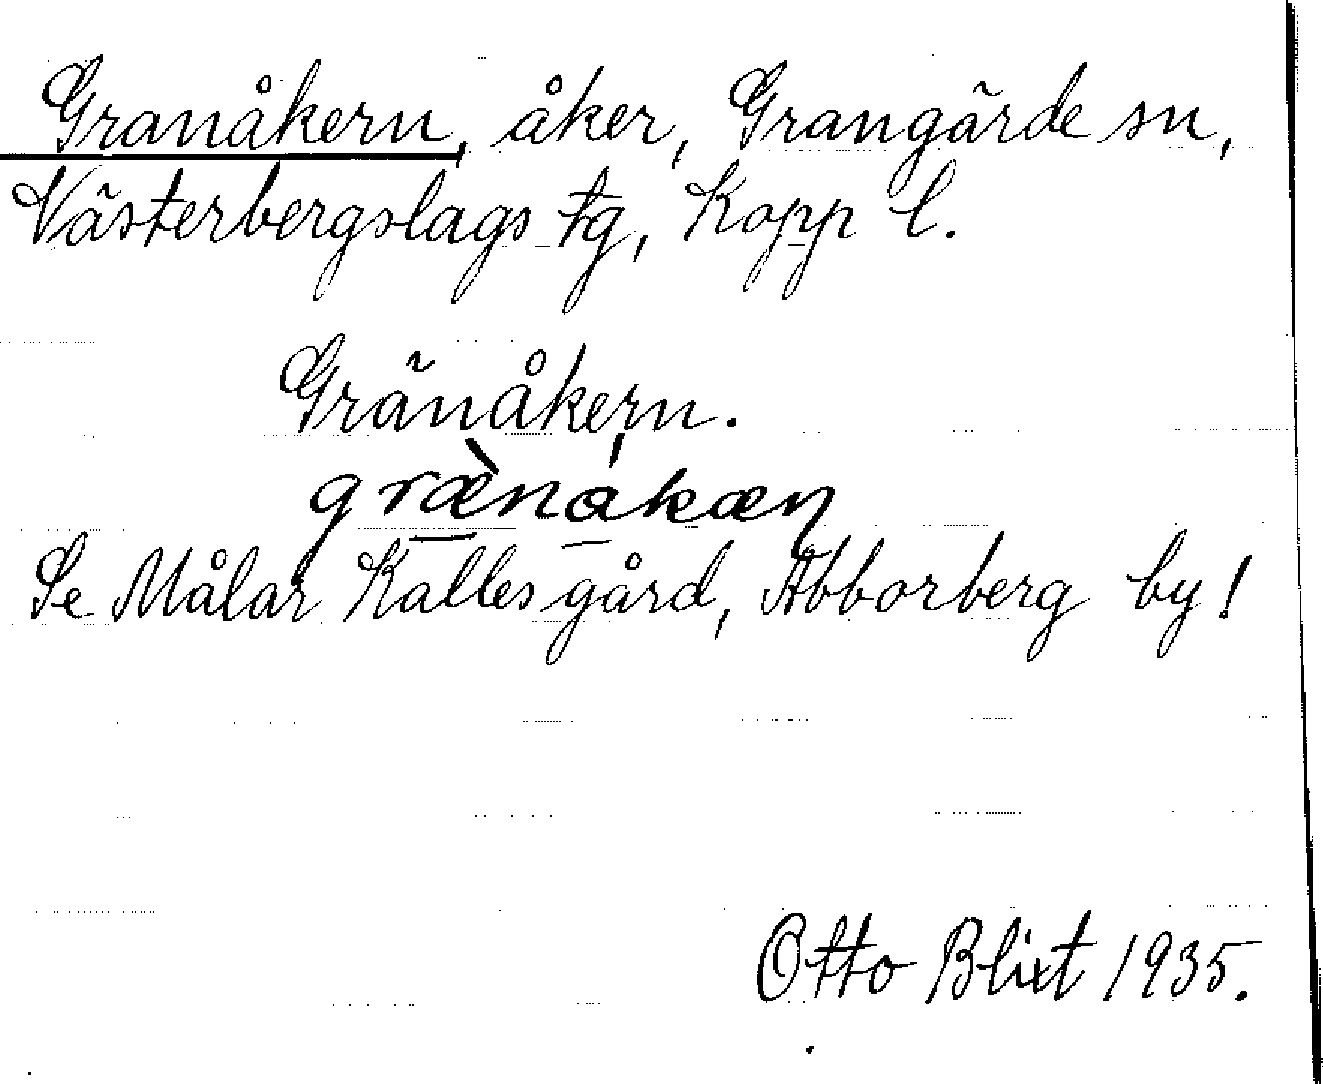 Granåkern, åker, Grangärde sn,
Västerbergslags tg, Kopp l.
Gränåkern.
grænåkæn
Se Målar Kalles gård, Abborberg by!
Otto Blixt 1935.